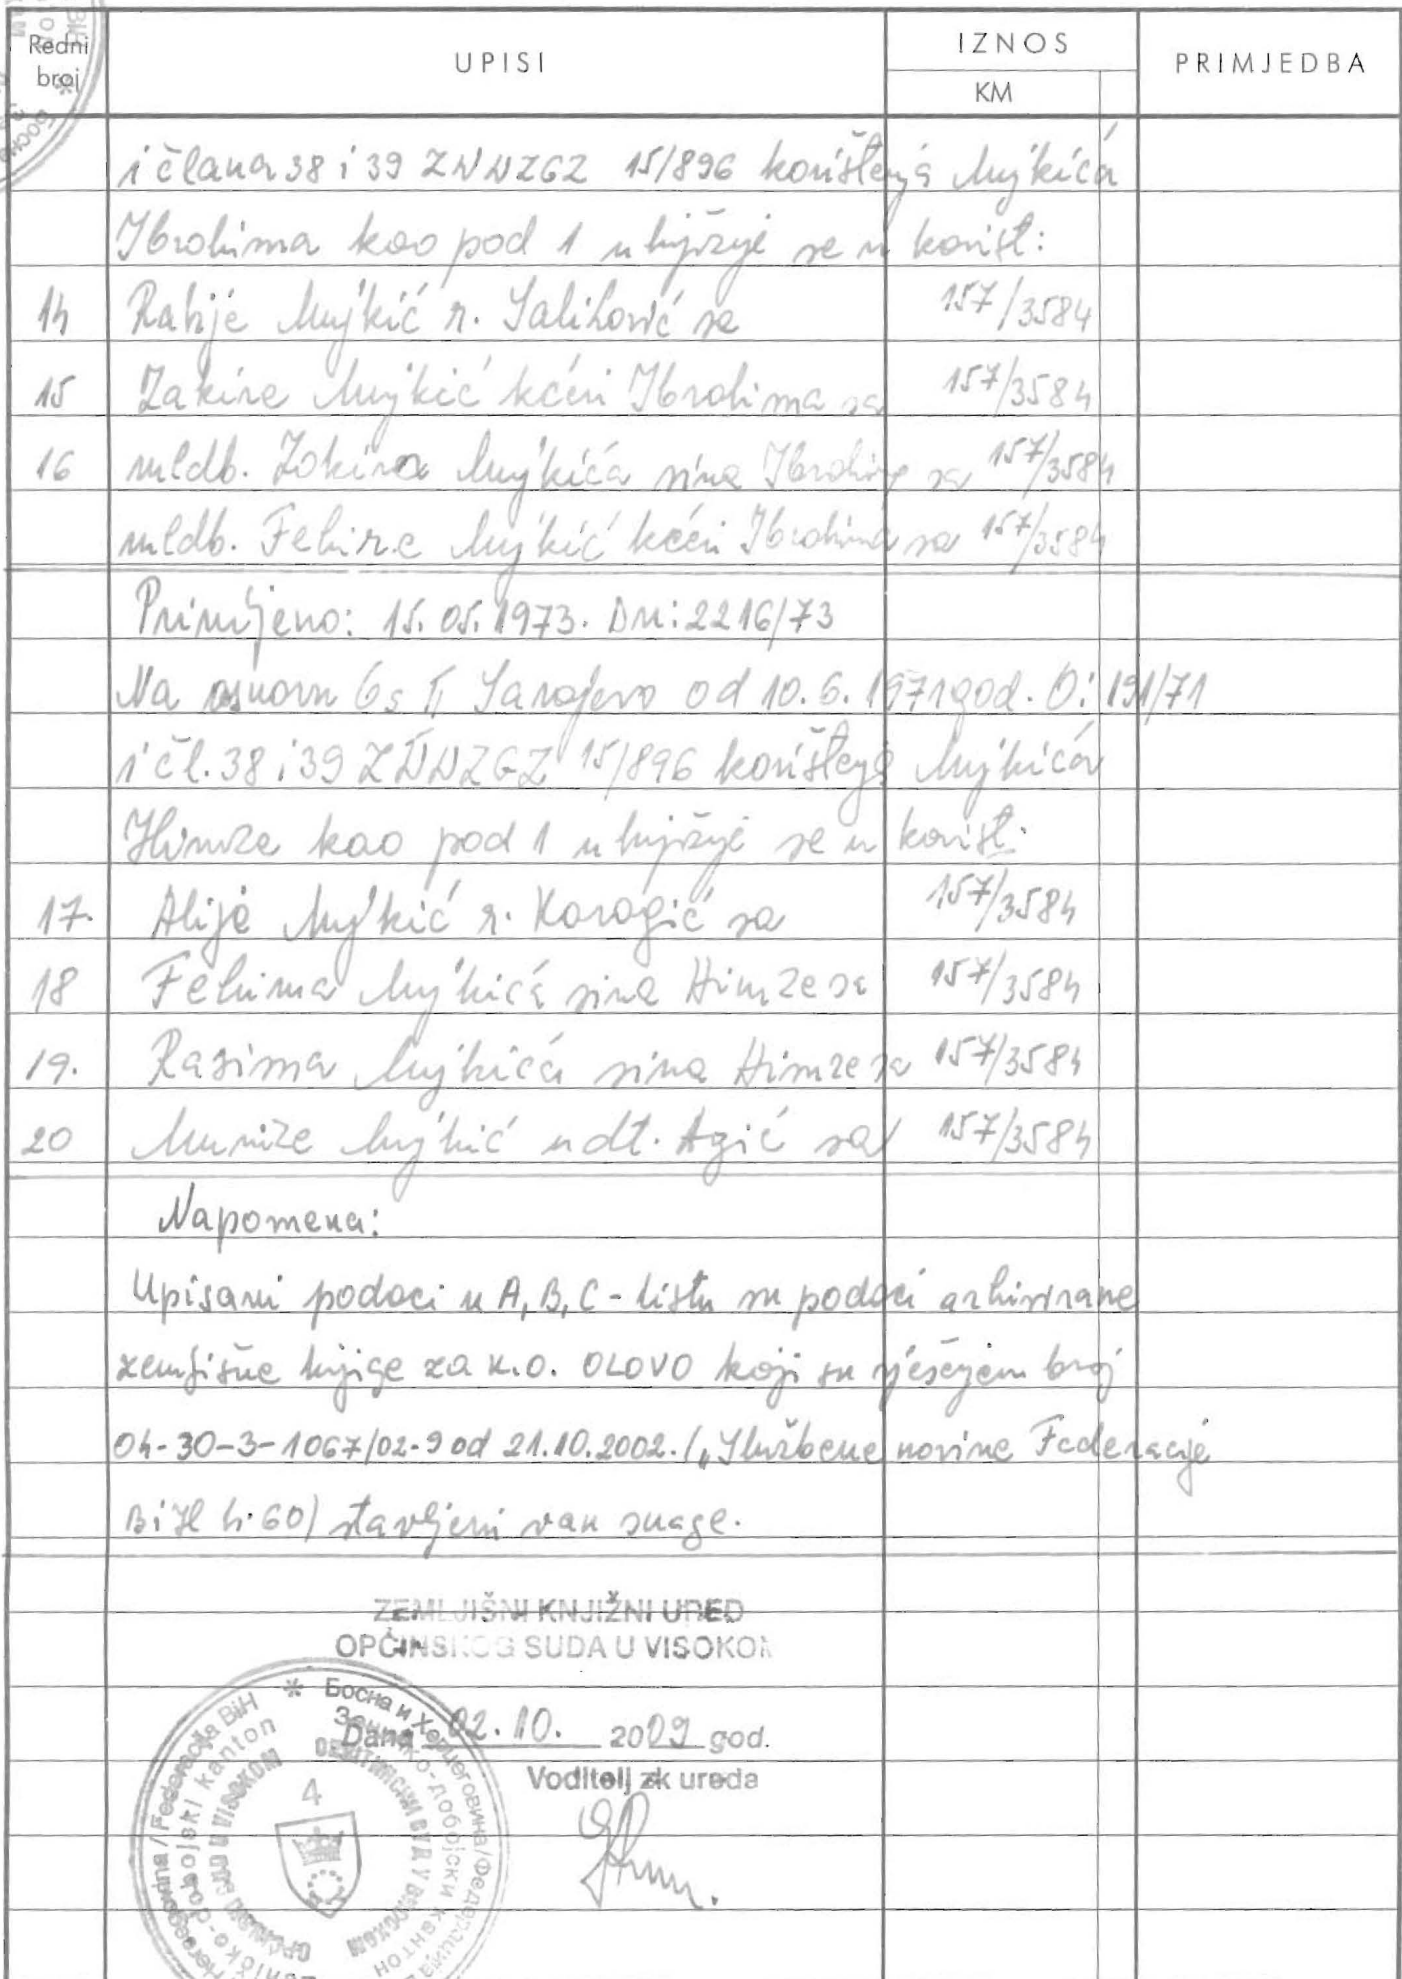 Redni broj UPISI IZNOS KM PRIMJEDBA
i člana 38 i 39 ZNNZGZ 15/896 korištenja Mujkića
Ibrahima kao pod 1 uknjižuje se u korist:
14 Rahije Mujkić r. Salihović sa 157/3584
15 Zakire Mujkić kćeri Ibrahima sa 157/3584
16 mldb. Zakira Mujkića sina Ibrahima sa 157/3584
mldb. Fehire Mujkić kćeri Ibrahima sa 157/3584
Primljeno: 15.05.1973. Dn: 2216/73
Na osnovu Os II Sarajevo od 10.6.1971 god. O: 191/71
i čl. 38 i 39 ZNNZGZ 15/896 korištenja Mujkića
Himze kao pod 1 uknjižuje se u korist:
17. Alije Mujkić r. Karagić sa 157/3584
18 Fehima Mujkića sina Himze sa 157/3584
19. Rasima Mujkića sina Himze sa 157/3584
20 Munize Mujkić udt. Agić sa 157/3584
Napomena:
Upisani podaci u A, B, C - listu su podaci arhivirane
zemljišne knjige za k.o. OLOVO koji su rješenjem broj
04-30-3-1067/02-9 od 21.10.2002. („Službene novine Federacije
BiH br. 60) stavljeni van snage.
ZEMLJIŠNI KNJIŽNI URED
OPĆINSKOG SUDA U VISOKOM
Dana 02.10. 2009 god.
Voditelj zk ureda
4